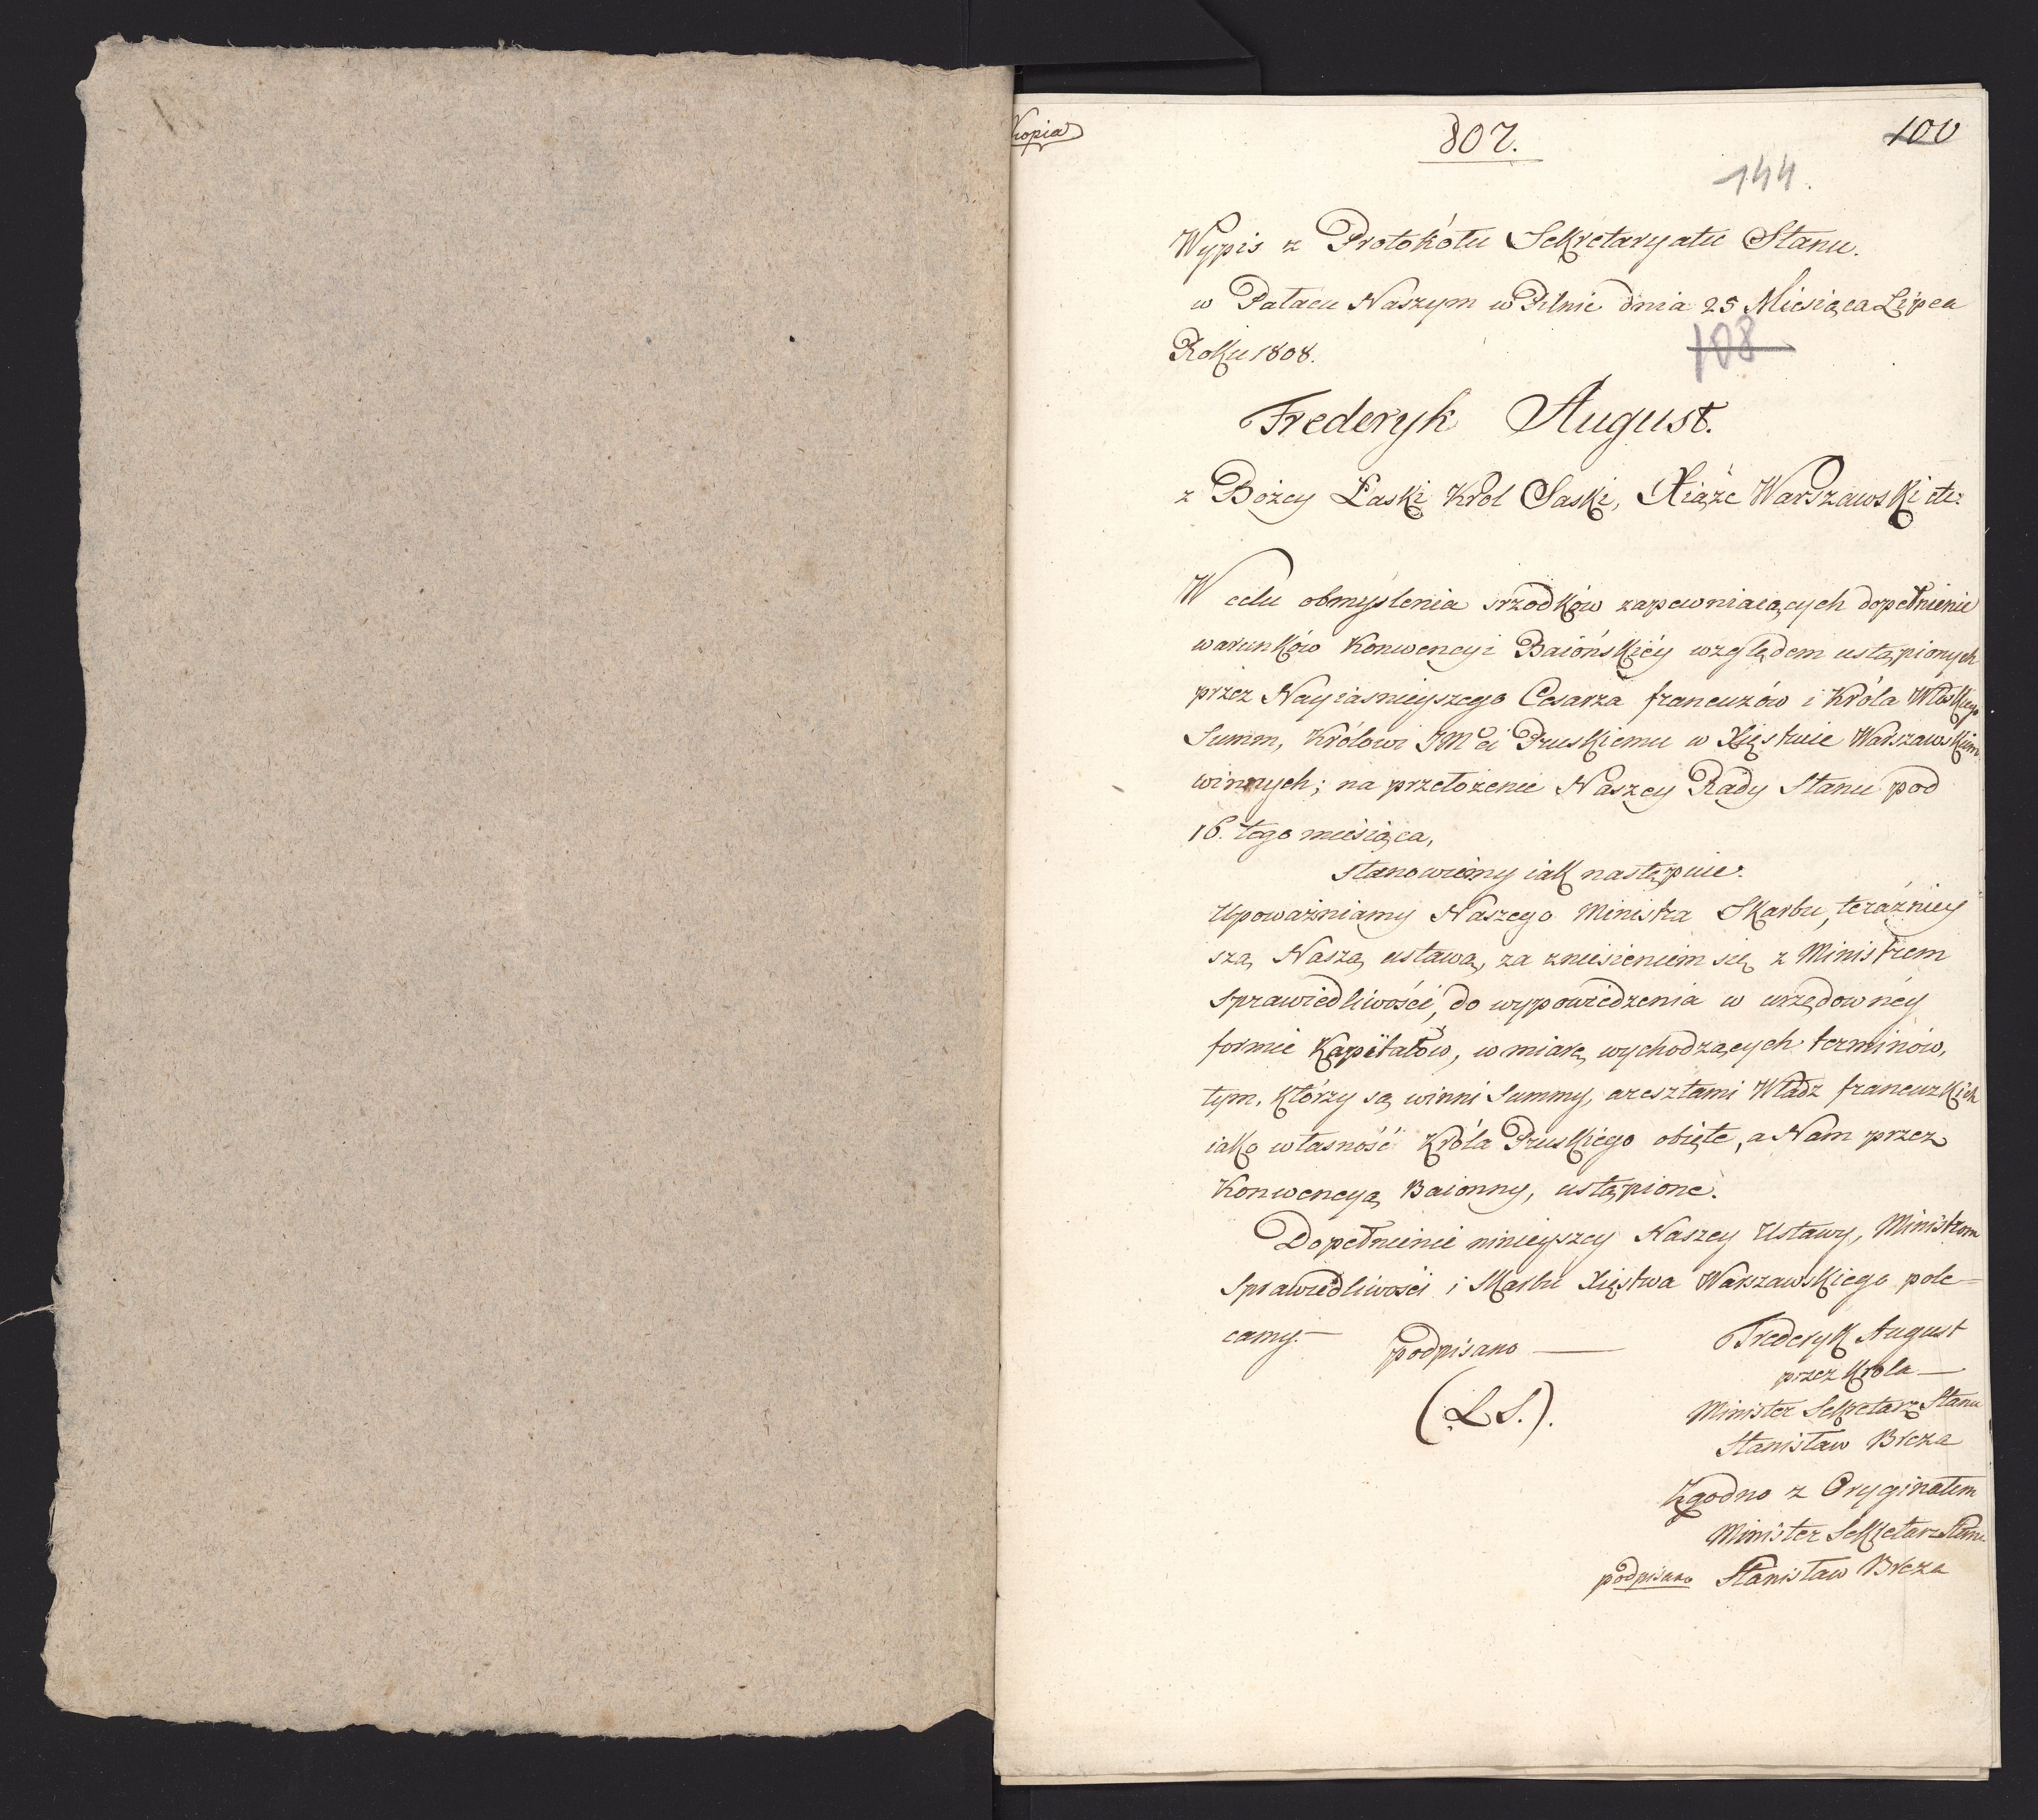 Kopia
807.
100
144.
Wypis z Protokółu Sekretaryatu Stanu.
w Pałacu Naszym w Pilnic dnia 25 Miesiąca Lipca
108
Roku 1808.
Frederyk August.
z Bożey Łaski Król Saski, Xiąże Warszawski etc:
W celu obmyślenia srzodków zapewniaiących dopełnienie
warunków Konwencyi Baiońskiéy względem ustąpionych
przez Nayiasnieyszego Cesarza francuzów i Króla Włoskiego
Summ, Królowi JMci Pruskiemu w Xięstwie Warszawskim
winnych; na przełożenie Naszey Rady Stanu pod
16. tego miesiąca,
Stanowiemy iak następuie:
Upoważniamy Naszego Ministra Skarbu, teraźniey
szą Naszą ustawą, za zniesieniem się z Ministrem
Sprawiedliwości, do wypowiedzenia w urzędownéy
formie Kapitałów, w miarę wychodzących terminów,
tym, którzy są winni Summy, aresztami Władz francuzkich
iako własność Króla Pruskiégo obięte, a Nam przez
Konwencyą Baionny, ustąpione.
Dopełnienie ninieyszey Naszey Ustawy, Ministrom
Sprawiedliwości i Skarbu Xięstwa Warszawskiego pole-
camy.-
podpisano —
Frederyk August
przez Króla —
(L.S.).
Minister Sekretarz Stanu
Stanisław Breza
Zgodno z Oryginałem
Minister Sekretarz Stanu
podpisano Stanisław Breza